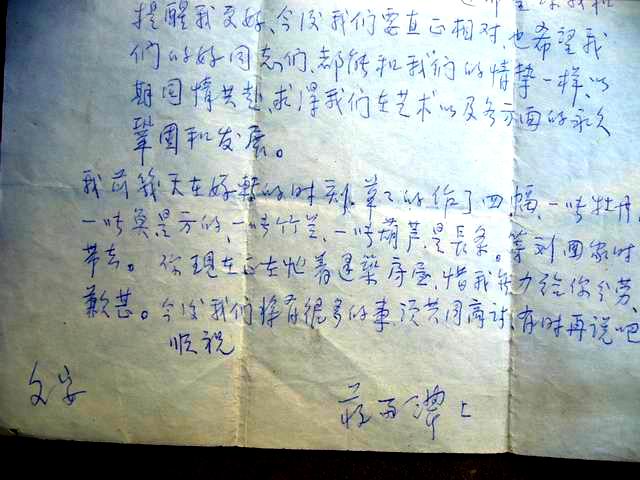 提醒我更好、今后我们要真正相对、也希望我
们的好同志们、都能和我们的情挚一样、以
期同情共赴、求得我们在艺术以及各方面的永久
巩固和发展。
我前几天在好转的时刻、草草的作了四幅、一啃牡丹、
一啃莫是方的、一啃竹兰、一啃葫芦、是長条。等刘回家时
带去。你现在正在忙着建築房屋、惜我无力给你分劳、
歉甚。今后我们将有很多的事、须共同商讨、有时再说吧
顺祝
文安
莊 上